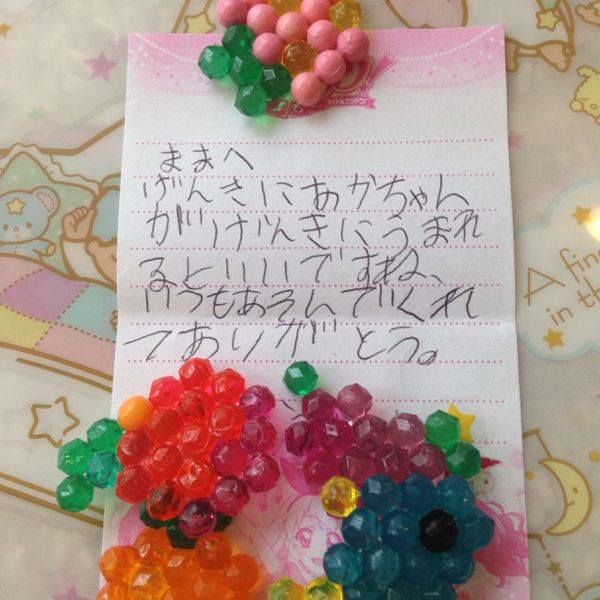 アイドルカツドウ!
ままへ
げんきにあかちゃん
がげんきにうまれ
るといいですね、
いつもあそんでくれ
てありがとう。
A fine
in the